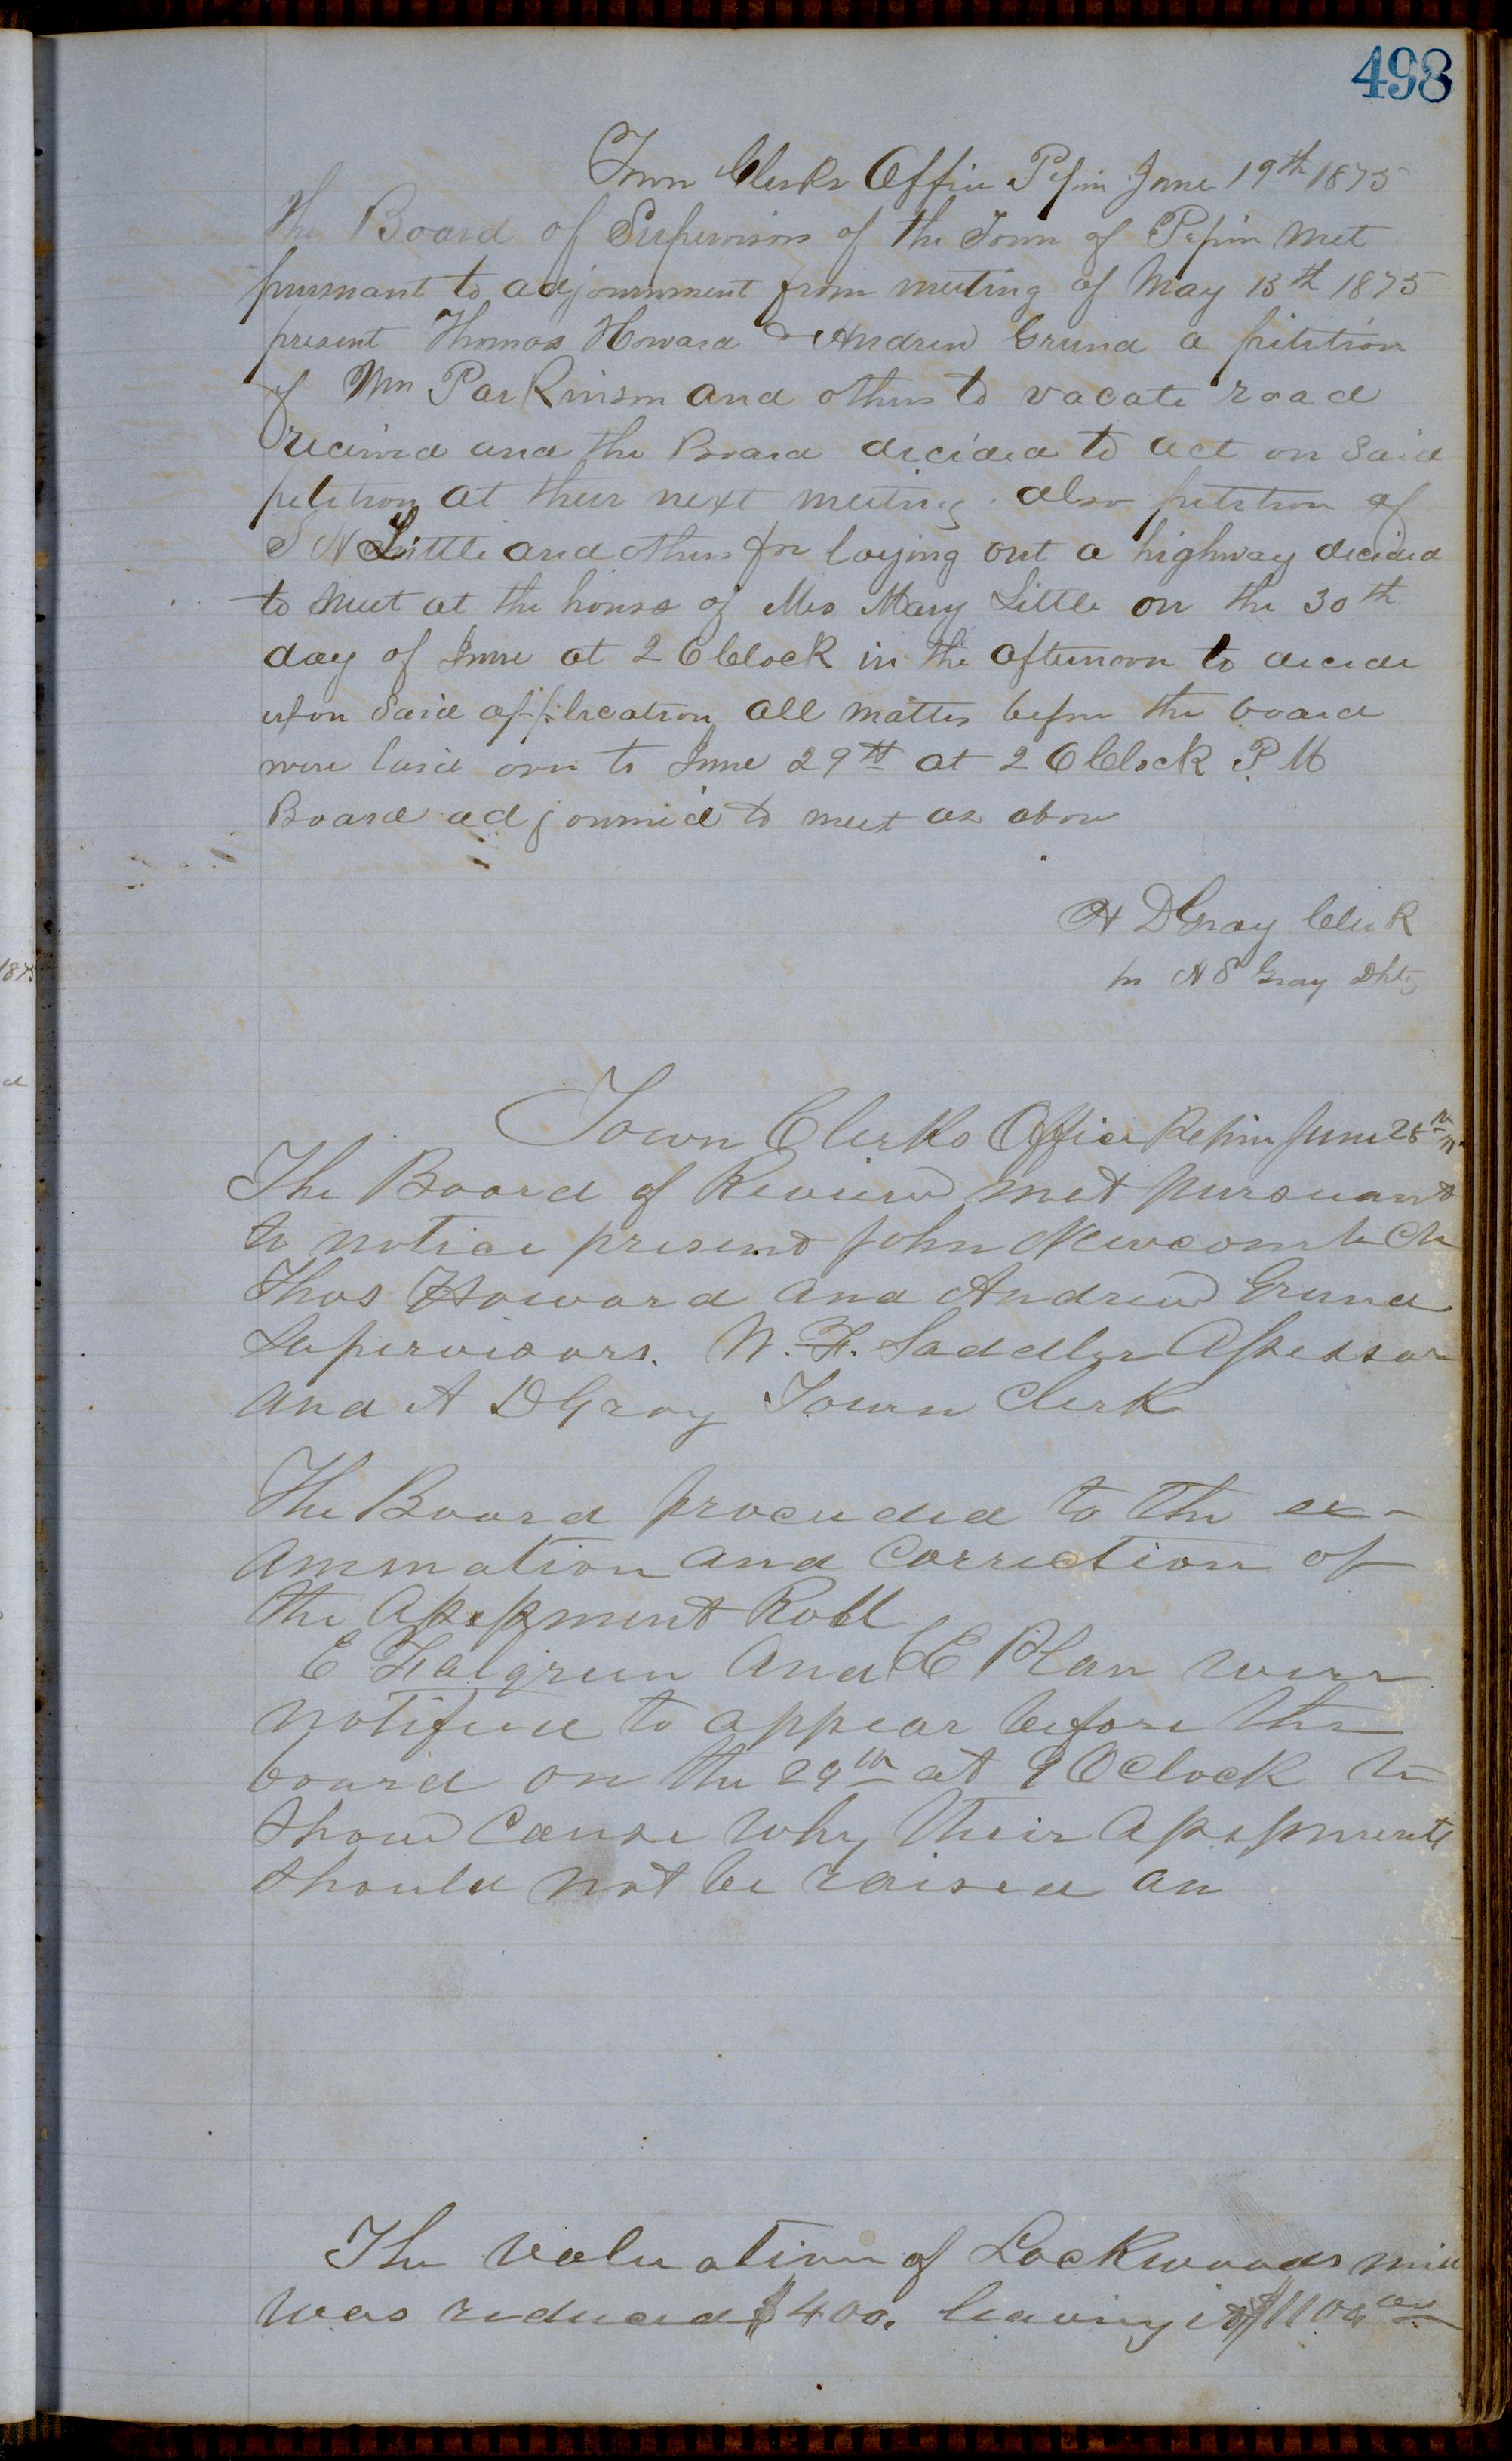 498
Town Clerks Office Pepin June 19th 1875
The Board of Supervisors of the Town of Pepin met
pursuant to adjournment from meeting of May 13th 1875
present Thomas Howard & Andrew Grund a petition
of Wm Parkinson and others to vacate road
recieved and the Board decided to act on Said
petition at their next meeting. also petition of
S N Little and others for laying out a highway decided
to meet at the house of Mrs Mary Little on the 30th
day of June at 2 O Clock in the afternoon to decide
upon Said application all matters before the board
were laid over to June 29th at 2 O Clock P.M
Board adjourned to meet as above
A D Gray Clerk
A S Gray Dpty
187
d
Town Clerks Office Pepin June 28th
The Board of Review met pursuant
to notice present John Newcomb Ch
Thos Howard and Andrew Grund
Supervisors. W. F. Saddler Assessor
and A D Gray Town Clerk
The Board proceeded to the ex-
amination and Correction of
the Assessment Roll
E Falgreen and E Plan were
notified to appear before the
board on the 29th at 9 O Clock to
Show Cause why their assessments
should not be raised an
The valuation of Lockwoods mill
was reduced $400. leaving it